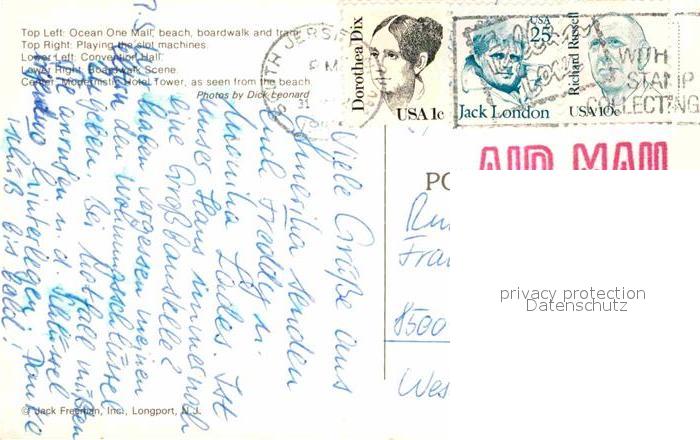 Top Left: Ocean One Mall, beach, boardwalk and tram.
Top Right: Playing the slot machines.
Lower Left: Convention Hall.
Lower Right: Boardwalk Scene.
Center: Modernistic Hotel Tower, as seen from the beach.
Photos by Dick Leonard
© Jack Freeman, Inc., Longport, N.J.
P.S.
Viele Grüße aus
Amerika senden
Eure Freddy u.
Marika Lades. Ist
unser Haus immer noch
eine Großbaustelle?
Haben vergessen meinen
Eltern den Wohnungsschlüssel
zu geben. Bei Notfall müßten
anrufen u. d. Schlüssel
hinterlegen. Danke
Tschüß bis bald!
SOUTH JERSEY
PM
Dorothea Dix
USA 1c
USA
25c
Jack London
Richard Russell
USA 10c
WITH
STAMP
COLLECTING
AIR MAIL
PO
Fra
8500
Wes
privacy protection
Datenschutz